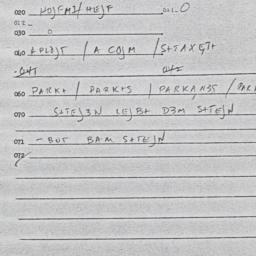 020 HOJFMI / HEJF 021-0
022-
030 0
040 APLOJT / A COJM / S+TAXGT+
-041 042
060 PARK+ / PARK+S / PARKANST / PARK
070 S+TEJ3N LEJB+ D3M S+TEJN
071 - BUT BAM S+TEJN
072